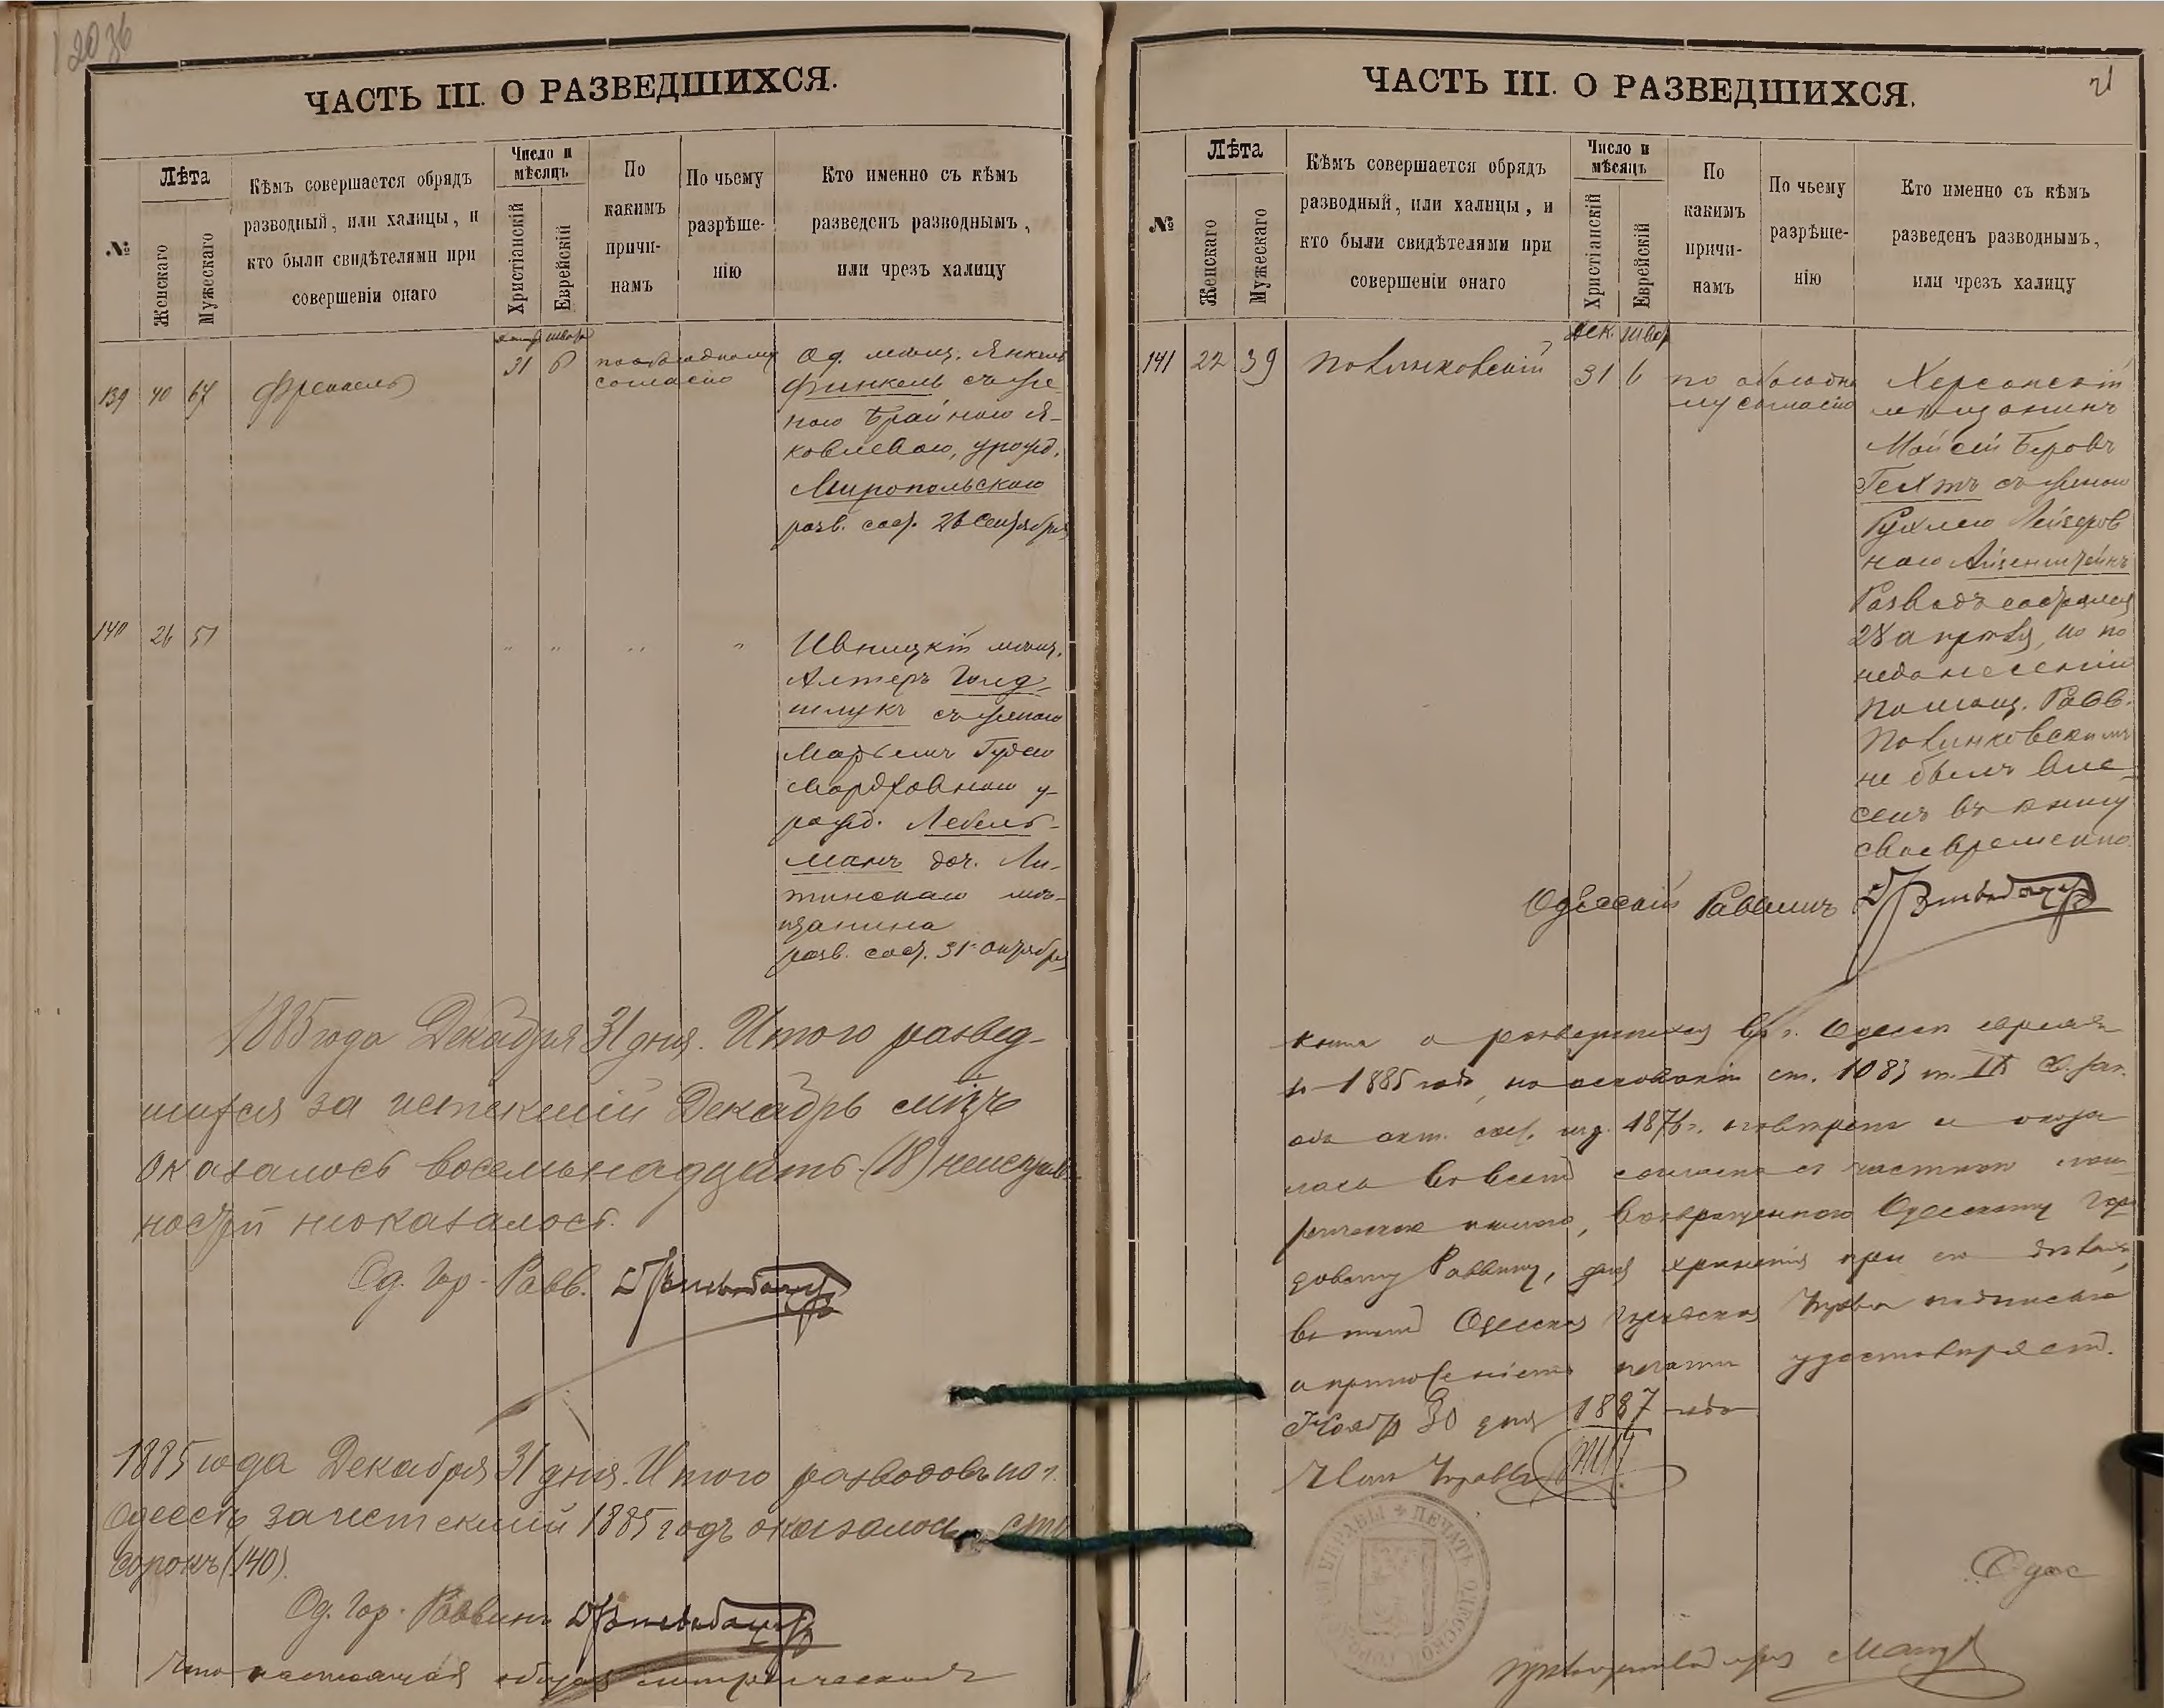 2036
ЧАСТЬ III. О РАЗВЕДШИХСЯ.
№
Лѣта
Женскаго
Мужескаго
Кѣмъ совершается обрядъ
разводный, или халицы, и
кто были свидѣтелями при
совершеніи онаго
Число и
мѣсяцъ
Христіанскій
Еврейскій
По
какимъ
причи-
намъ
По чьему
разрѣше-
нію
Кто именно съ кѣмъ
разведенъ разводнымъ,
или чрезъ халицу
139 40 67 Френкель 31 6
согласію
Од. мѣщ. Янкель
Финкель съ же-
ною Брайною Я-
ковлевою, урожд.
Миропольскою
разв. сост. 26 Сентября
140 26 51 " " " "
Ивницкій мѣщ.
Алтеръ Голд-
шлукъ съ женою
Марьемъ Гудею
Мордховною у-
рожд. Лебель-
манъ доч. Ли-
тинскаго мѣ-
щанина
разв. сост. 31 октября
1885 года Декабря 31 дня. Итого развед-
шихся за истекшій Декабрь мѣцъ
оказалось восемьнадцать (18) неисправ-
ностей неоказалось.
Од. Гор. Равв.
1885 года Декабря 31 дня. Итого разводовъ по г.
Одессѣ за истекшій 1885 годъ оказалось сто
сорокъ (140).
Од. Гор. Раввинъ
Что настоящая общая метрическая
ЧАСТЬ III. О РАЗВЕДШИХСЯ.
21
№
Лѣта
Женскаго
Мужескаго
Кѣмъ совершается обрядъ
разводный, или халицы, и
кто были свидѣтелями при
совершеніи онаго
Число и
мѣсяцъ
Христіанскій
Еврейскій
По
какимъ
причи-
намъ
По чьему
разрѣше-
нію
Кто именно съ кѣмъ
разведенъ разводнымъ,
или чрезъ халицу
Дек.
141 22 39 Повинковскій 31 6
по обоюдно
му согласію
Херсонскій
мѣщанинъ
Мойсей Беровъ
Гехтъ съ женою
Рухлею Лейзеров
ною Айзенштейнъ
Разводъ состоялся
28 апрѣля, но по
недонесенію
Помощ. Равв.
Повинковскимъ
не былъ вне-
сенъ въ книгу
своевременно
Одесскій Раввинъ
книга о разведшихся въ г. Одессѣ евреяхъ
за 1885 годъ, на основаніи ст. 1083 т. IX Св. Зак.
объ акт. сост. изд. 1876 г. повѣрена и оказа
лась во всемъ согласна съ частною мет
рическою книгою, возвращенною Одесскому Гор
довому Раввину, для храненія при его дѣлахъ,
въ томъ Одесская Городская Управа подписью
и приложеніемъ печати удостовѣряетъ.
Ноября 30 дня 1887 года
Членъ Управы
ПЕЧАТЬ ОДЕССКОЙ ГОРОДСКОЙ УПРАВЫ